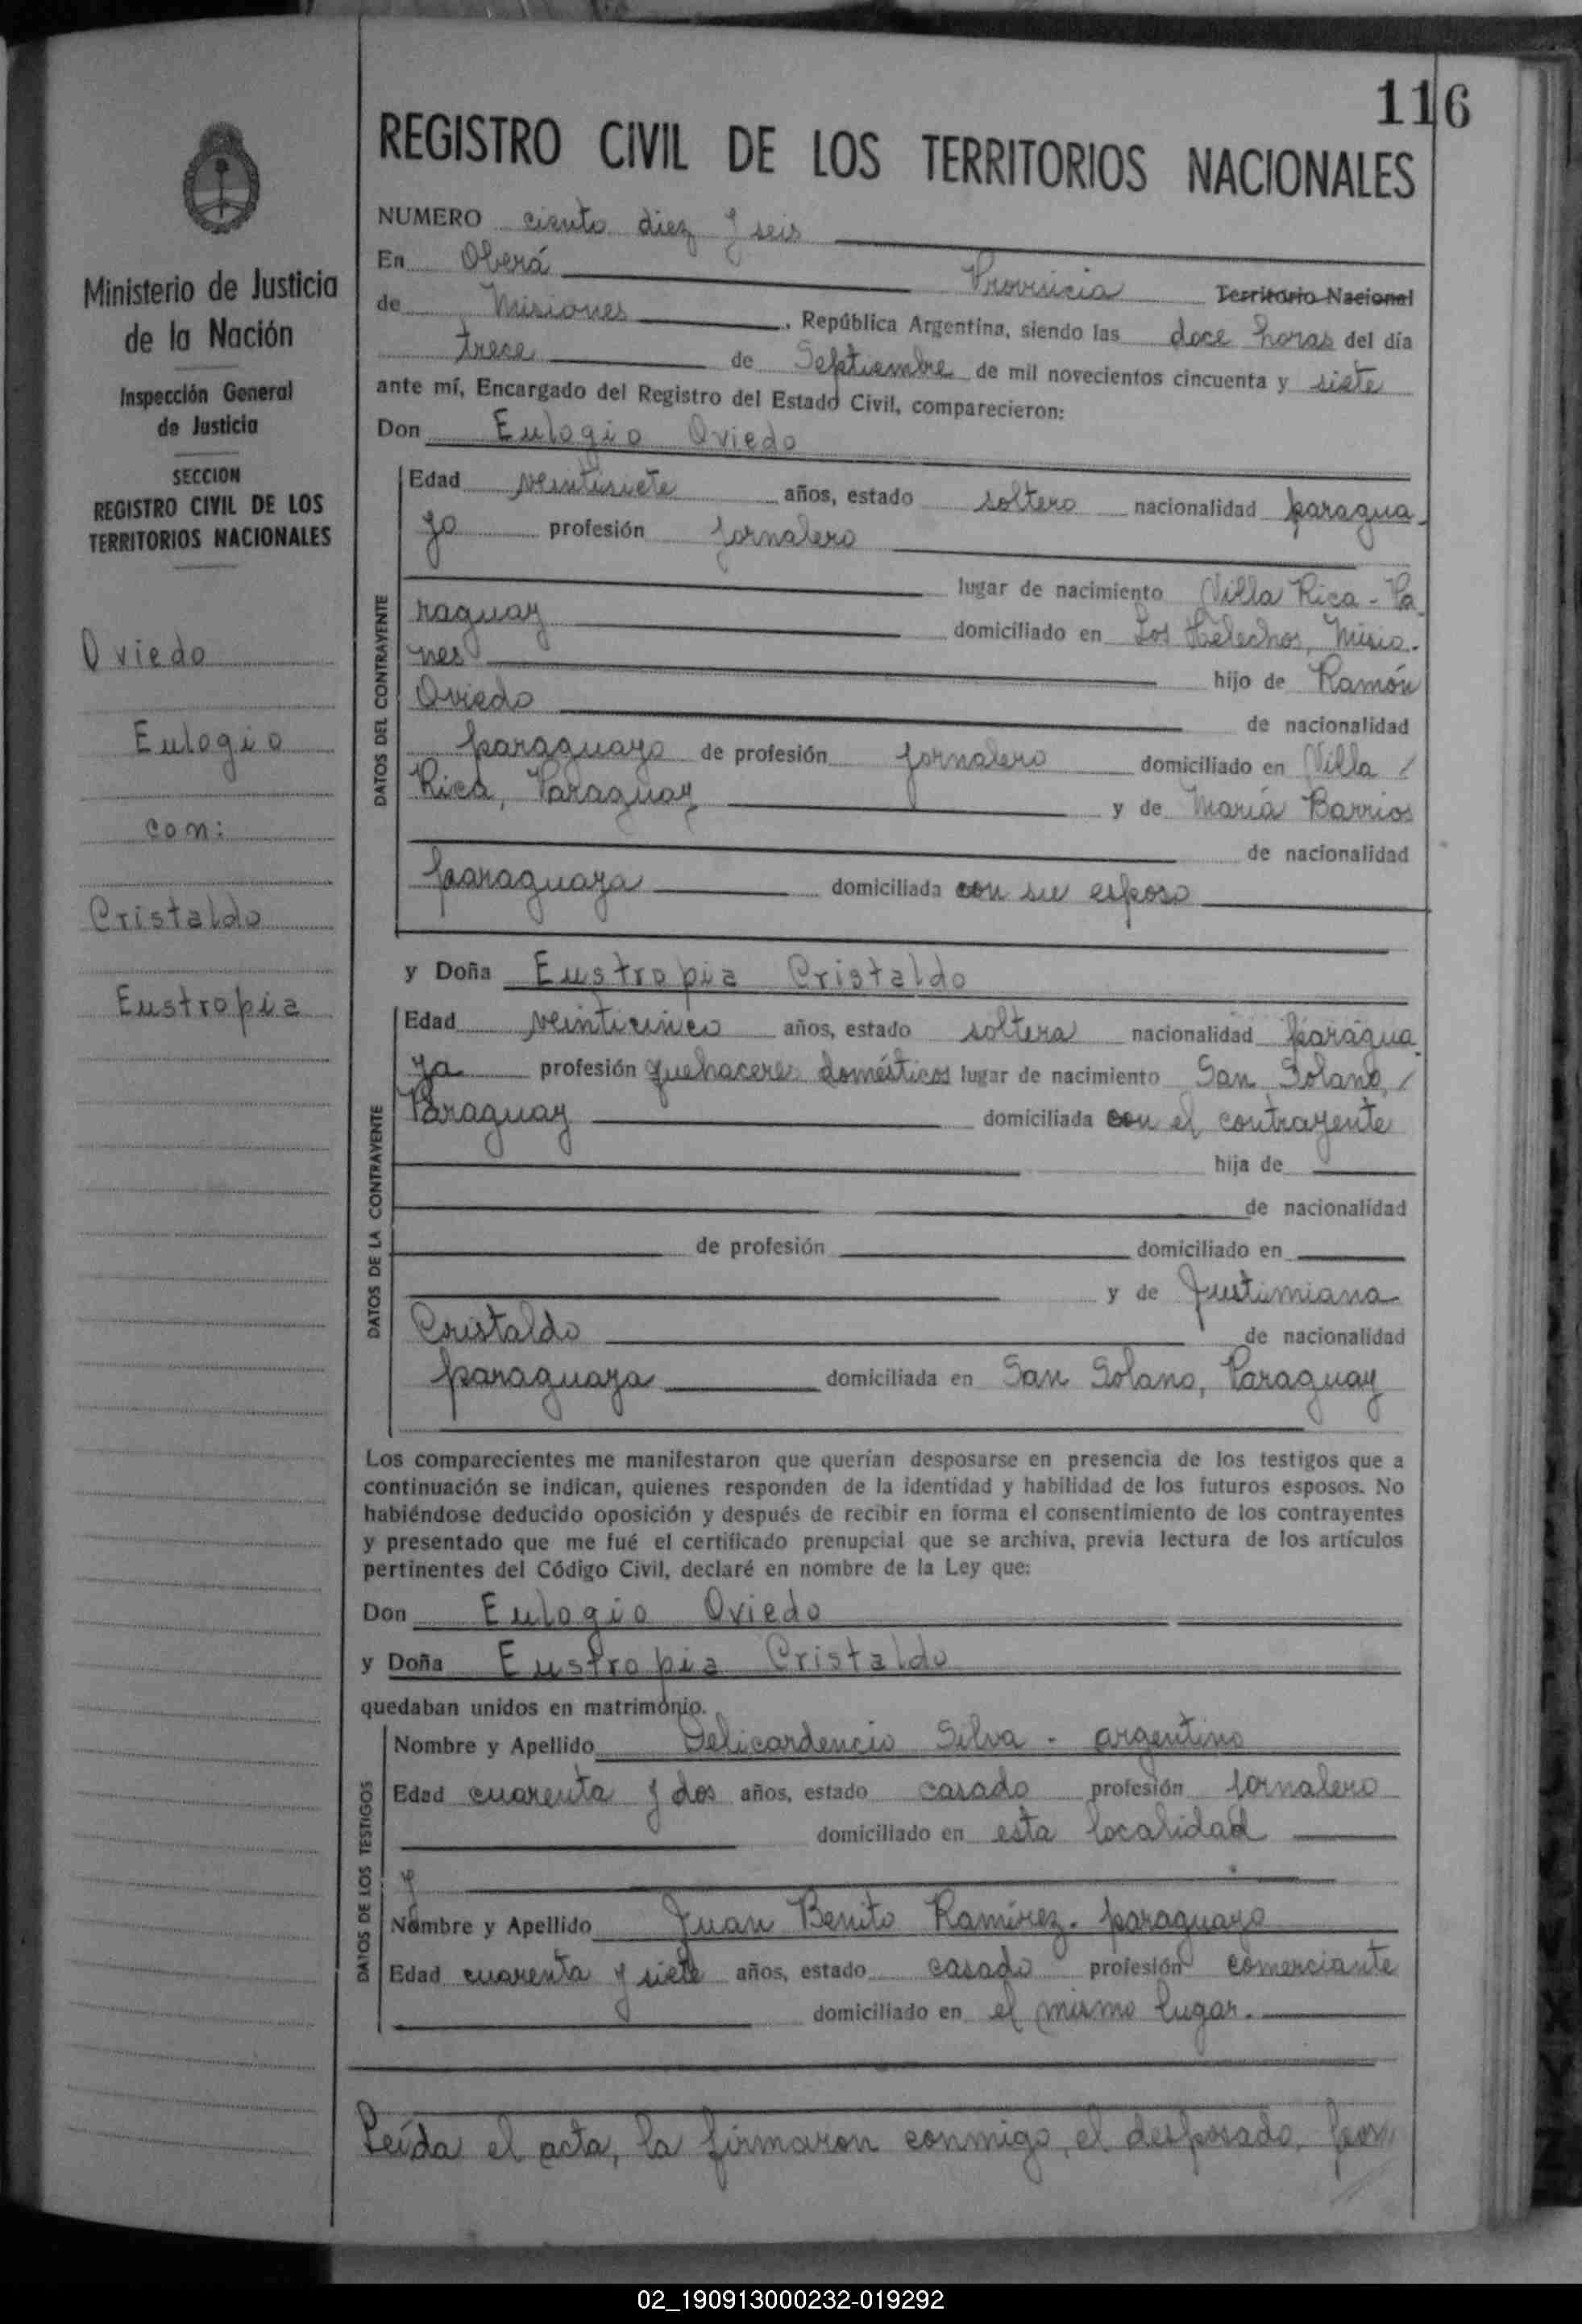 116
REGISTRO CIVIL DE LOS TERRITORIOS NACIONALES
Ministerio de Justicia
de la Nación
Inspección General
de Justicia
SECCION
REGISTRO CIVIL DE LOS
TERRITORIOS NACIONALES
Oviedo
Eulogio
con:
Cristaldo
Eustropia
NUMERO ciento diez y seis
En Oberá Provincia Territorio Nacional
de Misiones, República Argentina, siendo las doce horas del día
trece de Septiembre de mil novecientos cincuenta y siete
ante mí, Encargado del Registro del Estado Civil, comparecieron:
Don Eulogio Oviedo
DATOS DEL CONTRAYENTE
Edad veintisiete años, estado soltero nacionalidad paragua-
yo profesión jornalero
lugar de nacimiento Villa Rica - Pa-
raguay domiciliado en Los Helechos, Misio-
nes hijo de Ramón
Oviedo de nacionalidad
paraguayo de profesión jornalero domiciliado en Villa /
Rica, Paraguay y de María Barrios
de nacionalidad
paraguaya domiciliada con su esposo
y Doña Eustropia Cristaldo
DATOS DE LA CONTRAYENTE
Edad veinticinco años, estado soltera nacionalidad paragua-
ya profesión quehaceres domésticos lugar de nacimiento San Solano, /
Paraguay domiciliada con el contrayente
hija de
de nacionalidad
de profesión domiciliado en
y de Justimiana
Cristaldo de nacionalidad
paraguaya domiciliada en San Solano, Paraguay
Los comparecientes me manifestaron que querían desposarse en presencia de los testigos que a
continuación se indican, quienes responden de la identidad y habilidad de los futuros esposos. No
habiéndose deducido oposición y después de recibir en forma el consentimiento de los contrayentes
y presentado que me fué el certificado prenupcial que se archiva, previa lectura de los artículos
pertinentes del Código Civil, declaré en nombre de la Ley que:
Don Eulogio Oviedo
y Doña Eustropia Cristaldo
quedaban unidos en matrimonio.
DATOS DE LOS TESTIGOS
Nombre y Apellido Delicardencio Silva - argentino
Edad cuarenta y dos años, estado casado profesión jornalero
domiciliado en esta localidad
y
Nombre y Apellido Juan Benito Ramírez - paraguayo
Edad cuarenta y siete años, estado casado profesión comerciante
domiciliado en el mismo lugar.
Leída el acta, la firmaron conmigo, el desposado, por
02_190913000232-019292